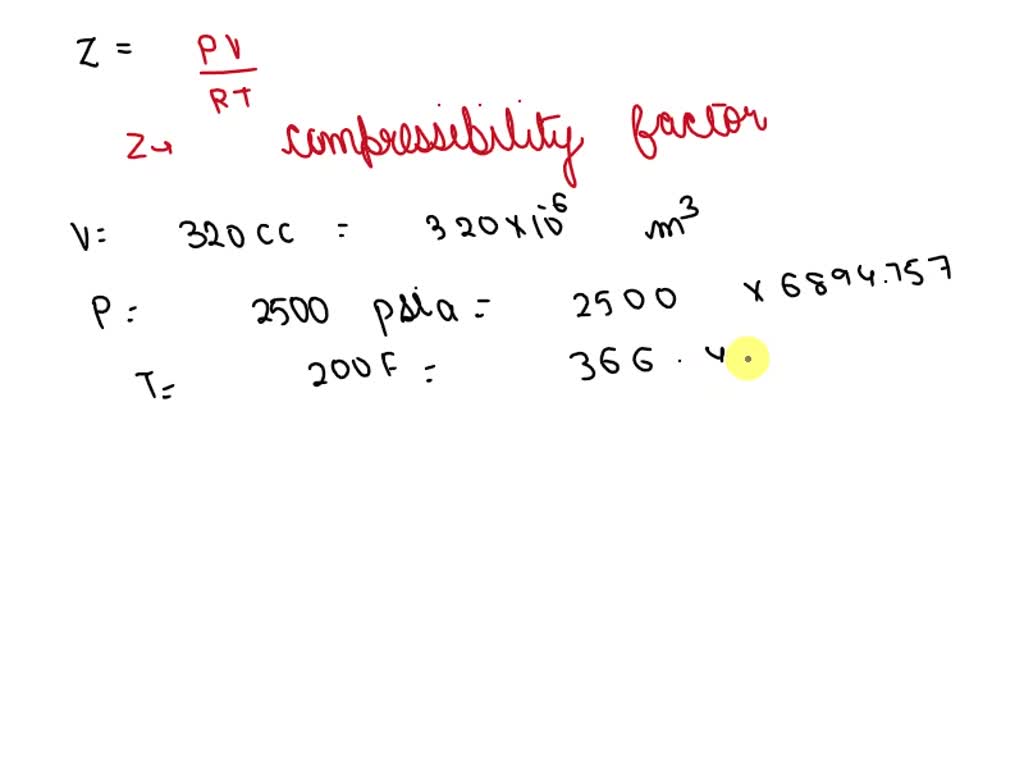 Z = PV
RT
Z→ compressibility factor
V= 320 CC = 320×10⁻⁶ m³
P= 2500 psia = 2500 × 6894.757
T= 200F = 366.4